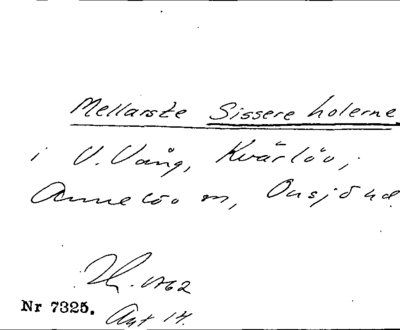 Mellarste Sissere holerne
i V. Vång, Kvärlöv,
Annelöv sn, Onsjö hd.
1762
Nr 7325. Akt 14.